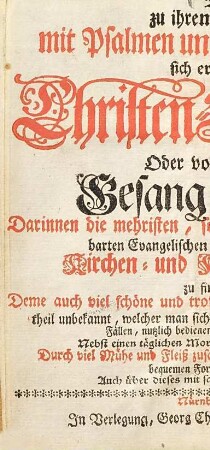 zu ihren
mit Psalmen un
sich er
Christen-
Oder vo
Gesang
Darinnen die mehristen,
barten Evangelischen
Kirchen- und
zu fi
Deme auch viel schöne und tro
theil unbekannt, welcher man sich
Fällen, nutzlich bediene
Nebst einen täglichen Mor
Durch viel Mühe und Fleiß zus
bequemen For
Auch über dieses mit s
Nürnb
In Verlegung, Georg Ch